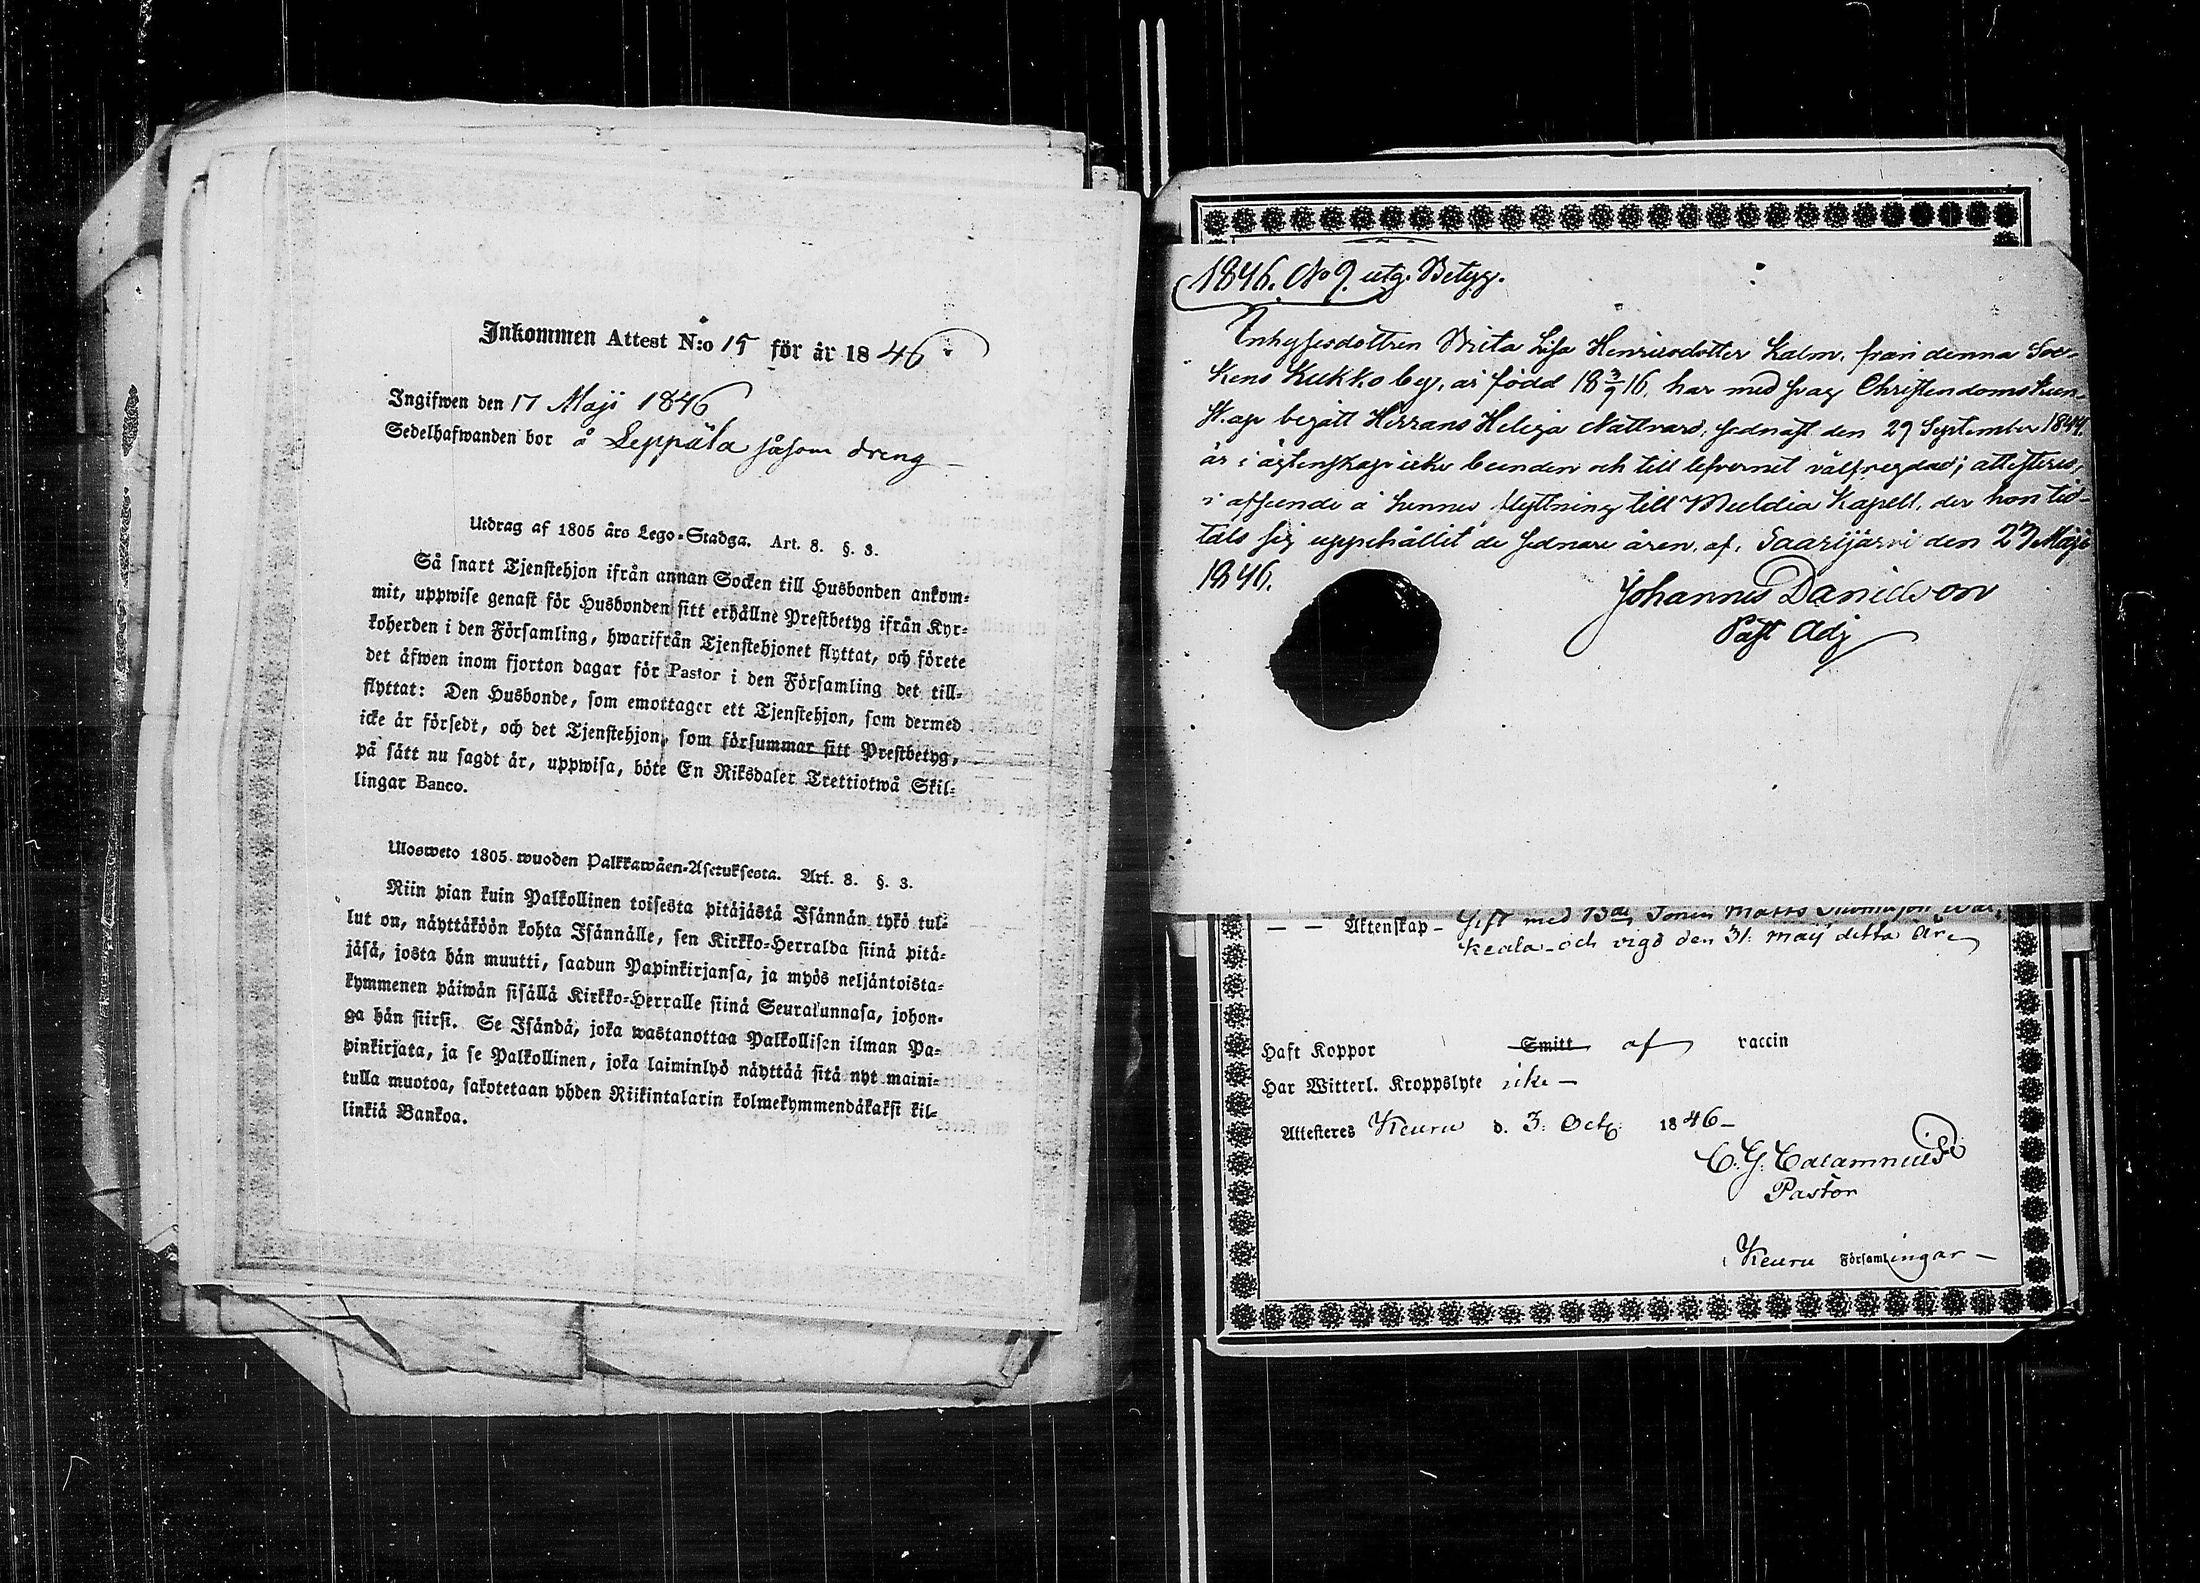 Inkommen Attest N:o 15 för år 1846
Ingifwen den 17 Maji 1846
Sedelhafwanden bor å Leppälä såsom dreng
Utdrag af 1805 års Lego-Stadga. Art. 8. §. 3.
Så snart Tjenstehjon ifrån annan Socken till Husbonden ankom-
mit, uppwise genast för Husbonden sitt erhållne Prestbetyg ifrån Kyr-
koherden i den Församling, hwarifrån Tjenstehjonet flyttat, och förete
det äfwen inom fjorton dagar för Pastor i den Församling det till-
flyttat: Den Husbonde, som emottager ett Tjenstehjon, som dermed
icke är försedt, och det Tjenstehjon, som försummar sitt Prestbetyg,
på sätt nu sagdt är, uppwisa, böte En Riksdaler Trettiotwå Skil-
lingar Banco.
Ulosweto 1805 wuoden Palkkawäen-Asetuksesta. Art. 8. §. 3.
Niin pian kuin Palkollinen toisesta pitäjästä Isännän tykö tul-
lut on, näyttäköön kohta Isännälle, sen Kirkko-Herralda siinä pitä-
jäsä, josta hän muutti, saadun Papinkirjansa, ja myös neljäntoista-
kymmenen päiwän sisällä Kirkko-Herralle siinä Seurakunnasa, johon-
ga hän siirsi. Se Isändä, joka wastanottaa Palkollisen ilman Pa-
pinkirjata, ja se Palkollinen, joka laiminlyö näyttää sitä nyt maini-
tulla muotoa, sakotetaan yhden Riikintalarin kolmekymmendäkaksi kil-
linkiä Bankoa.
1846. No 9. utg. Betyg.
Inhysesdottren Brita Lisa Henricsdotter Kalm, från denna Soc-
kens Kukko by, är född 18 3/9 16, har med svag Christendomskun-
skap begått Herrans Heliga Nattvard, sednast den 29 September 1844.
är i äctenskap icke bunden och till lefvernet välfregdad; attesteras,
i afseende å hennes flyttning till Multia Kapell, der hon tid-
tals sig uppehållit de sednare åren, af. Saarijärvi den 27 Maji
1846.
Johannes Danielson
Past Adj
— — Äktenskap - Gift med Matts
och vigd den 31. Maij detta År
Haft Koppor Smitt af vaccin
Har Witterl. Kroppslyte icke —
Attesteres Keuru d. 3. Oct. 1846 —
C. G. Calamnius
Pastor
i Keuru Församlingar —